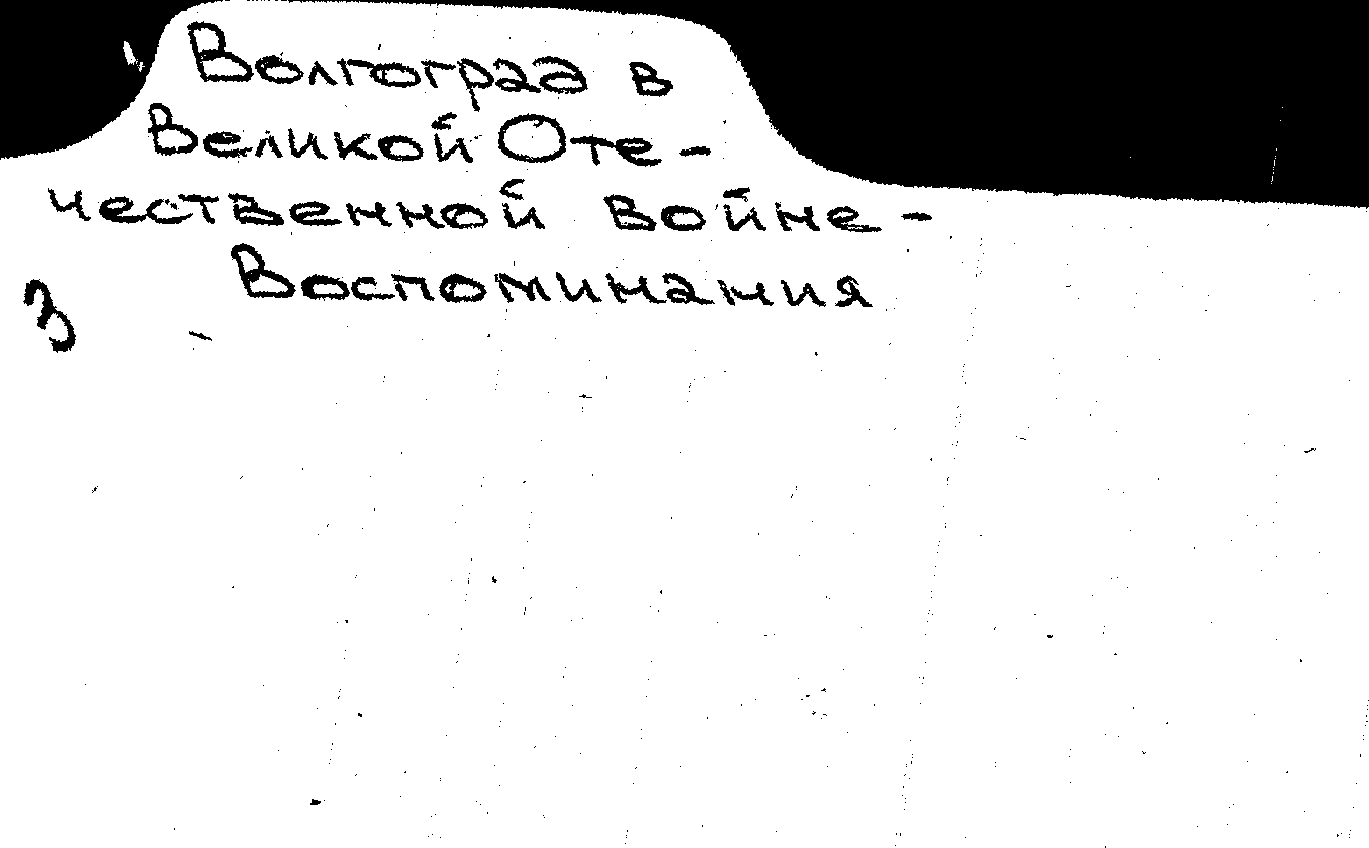 Волгоград в
Великой Оте-
чественной войне-
Воспоминания
3